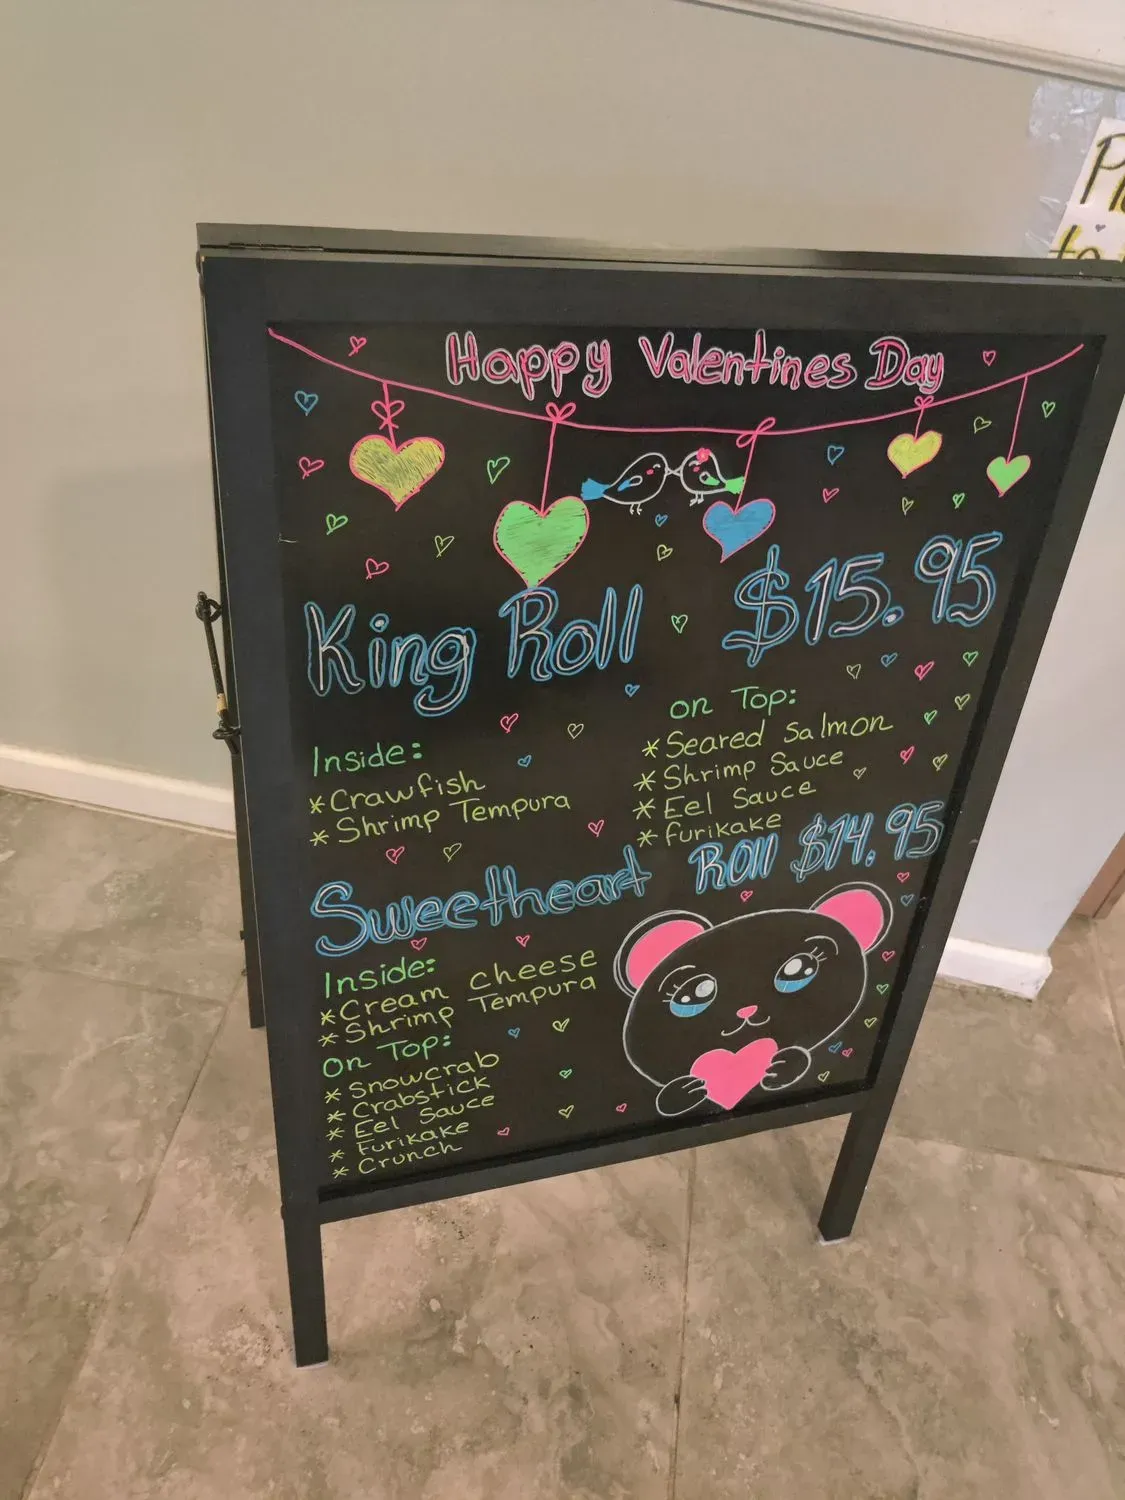 Happy Valentines Day
King Roll $15.95
Inside:
*Crawfish
*Shrimp Tempura
on Top:
*Seared Salmon
*Shrimp Sauce
*Eel Sauce
*furikake
Sweetheart Roll $14.95
Inside:
*Cream cheese
*Shrimp Tempura
On Top:
*Snowcrab
*Crabstick
*Eel Sauce
*Furikake
*Crunch
to